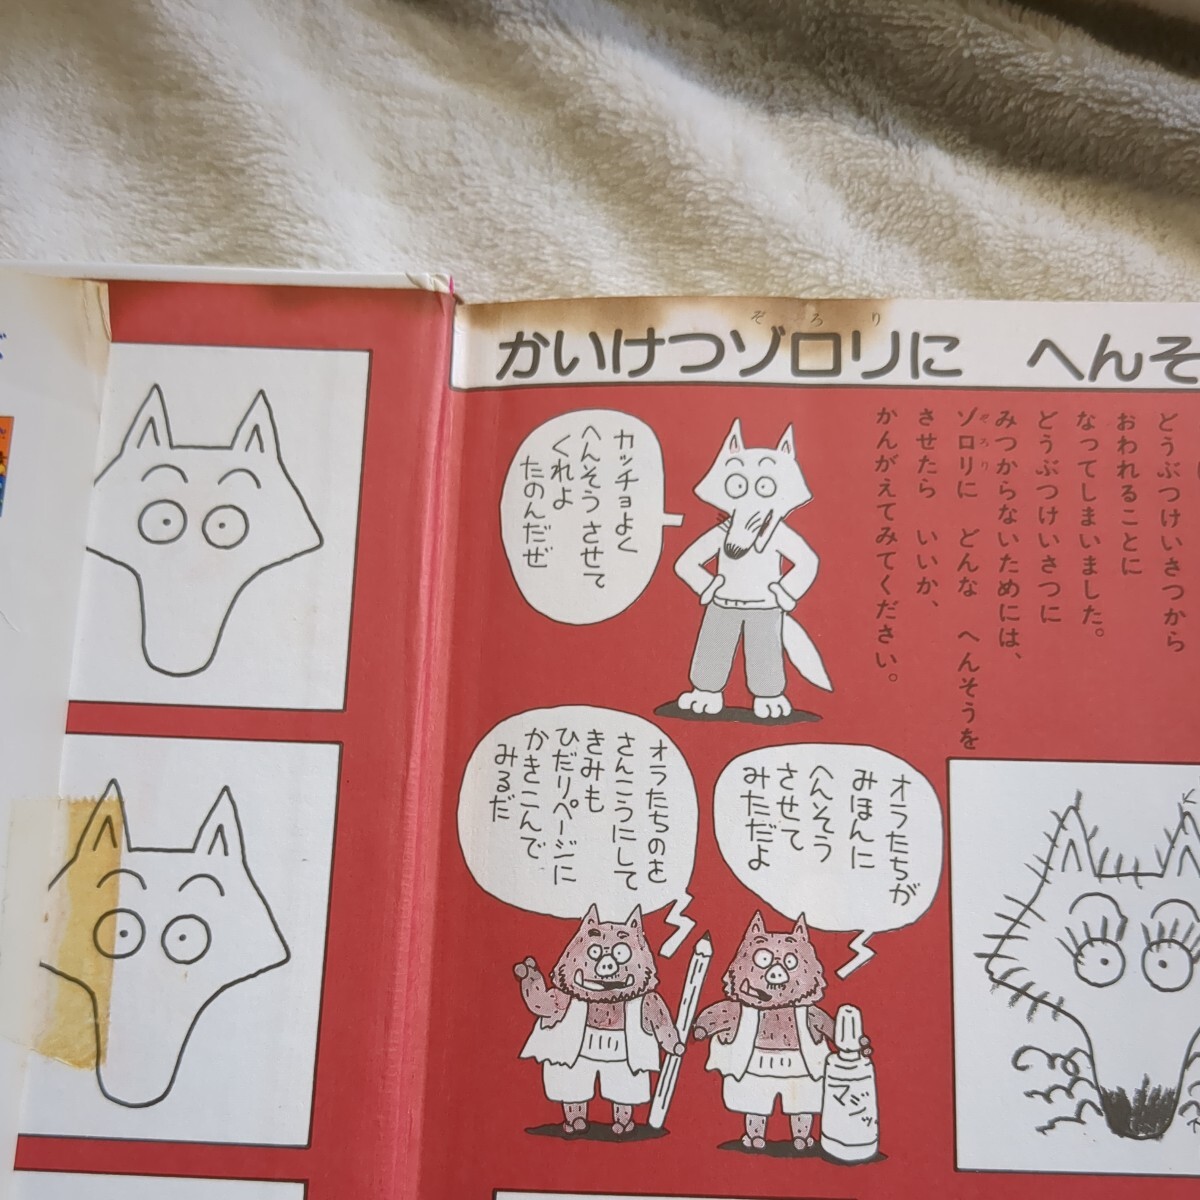 ぞろり
かいけつゾロリに　へんそ
どうぶつけいさつから
おわれることに
なってしまいました。
どうぶつけいさつに
みつからないためには、
ぞろり
ゾロリに　どんな　へんそうを
させたら　いいか、
かんがえてみてください。
カッチョよく
へんそうさせて
くれよ
たのんだぜ
オラたちが
みほんに
へんそう
させて
みただよ
オラたちのを
さんこうにして
きみも
ひだりページに
かきこんで
みるだ
マジッ